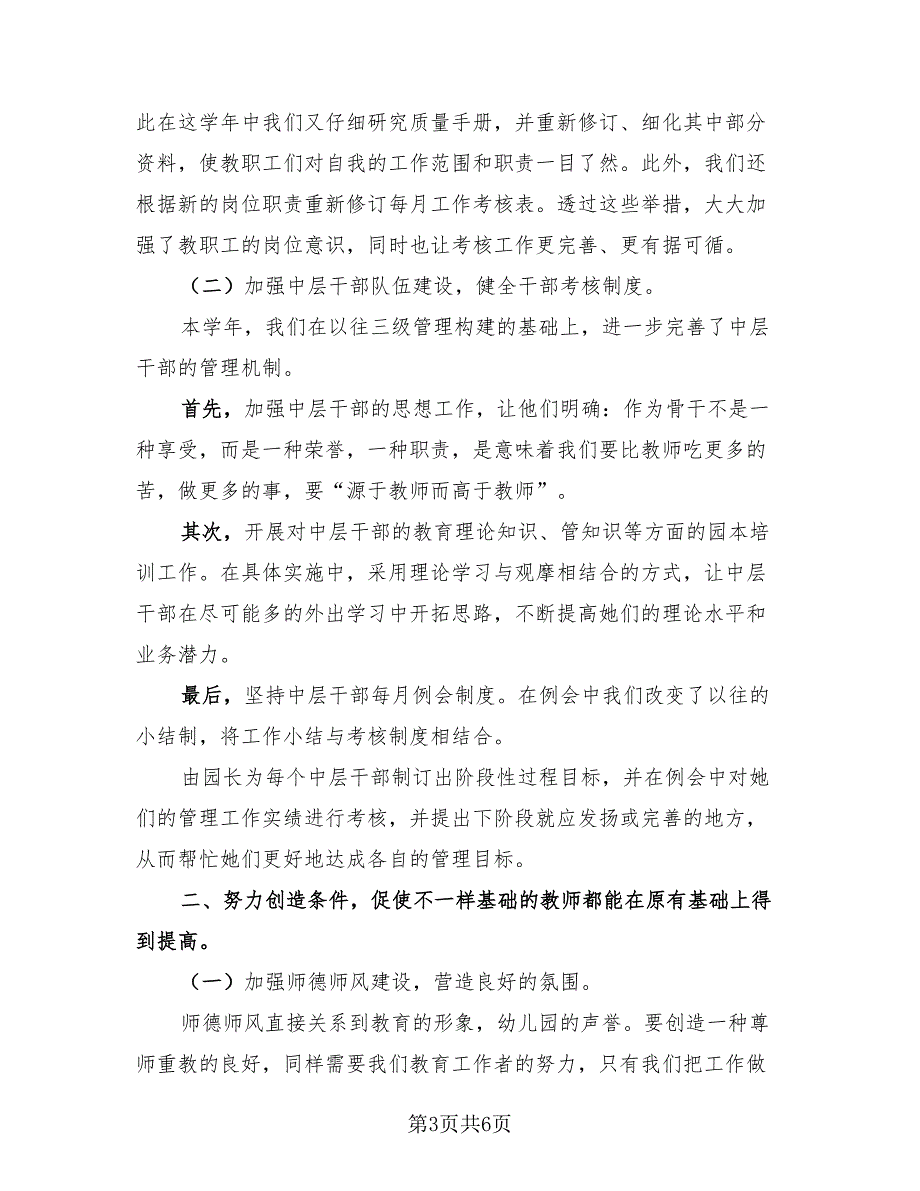 此在这学年中我们又仔细研究质量手册，并重新修订、细化其中部分
资料，使教职工们对自我的工作范围和职责一目了然。此外，我们还
根据新的岗位职责重新修订每月工作考核表。透过这些举措，大大加
强了教职工的岗位意识，同时也让考核工作更完善、更有据可循。
（二）加强中层干部队伍建设，健全干部考核制度。
本学年，我们在以往三级管理构建的基础上，进一步完善了中层
干部的管理机制。
首先，加强中层干部的思想工作，让他们明确：作为骨干不是一
种享受，而是一种荣誉，一种职责，是意味着我们要比教师吃更多的
苦，做更多的事，要“源于教师而高于教师”。
其次，开展对中层干部的教育理论知识、管知识等方面的园本培
训工作。在具体实施中，采用理论学习与观摩相结合的方式，让中层
干部在尽可能多的外出学习中开拓思路，不断提高她们的理论水平和
业务潜力。
最后，坚持中层干部每月例会制度。在例会中我们改变了以往的
小结制，将工作小结与考核制度相结合。
由园长为每个中层干部制订出阶段性过程目标，并在例会中对她
们的管理工作实绩进行考核，并提出下阶段就应发扬或完善的地方，
从而帮忙她们更好地达成各自的管理目标。
二、努力创造条件，促使不一样基础的教师都能在原有基础上得
到提高。
（一）加强师德师风建设，营造良好的氛围。
师德师风直接关系到教育的形象，幼儿园的声誉。要创造一种尊
师重教的良好，同样需要我们教育工作者的努力，只有我们把工作做
第3页共6页